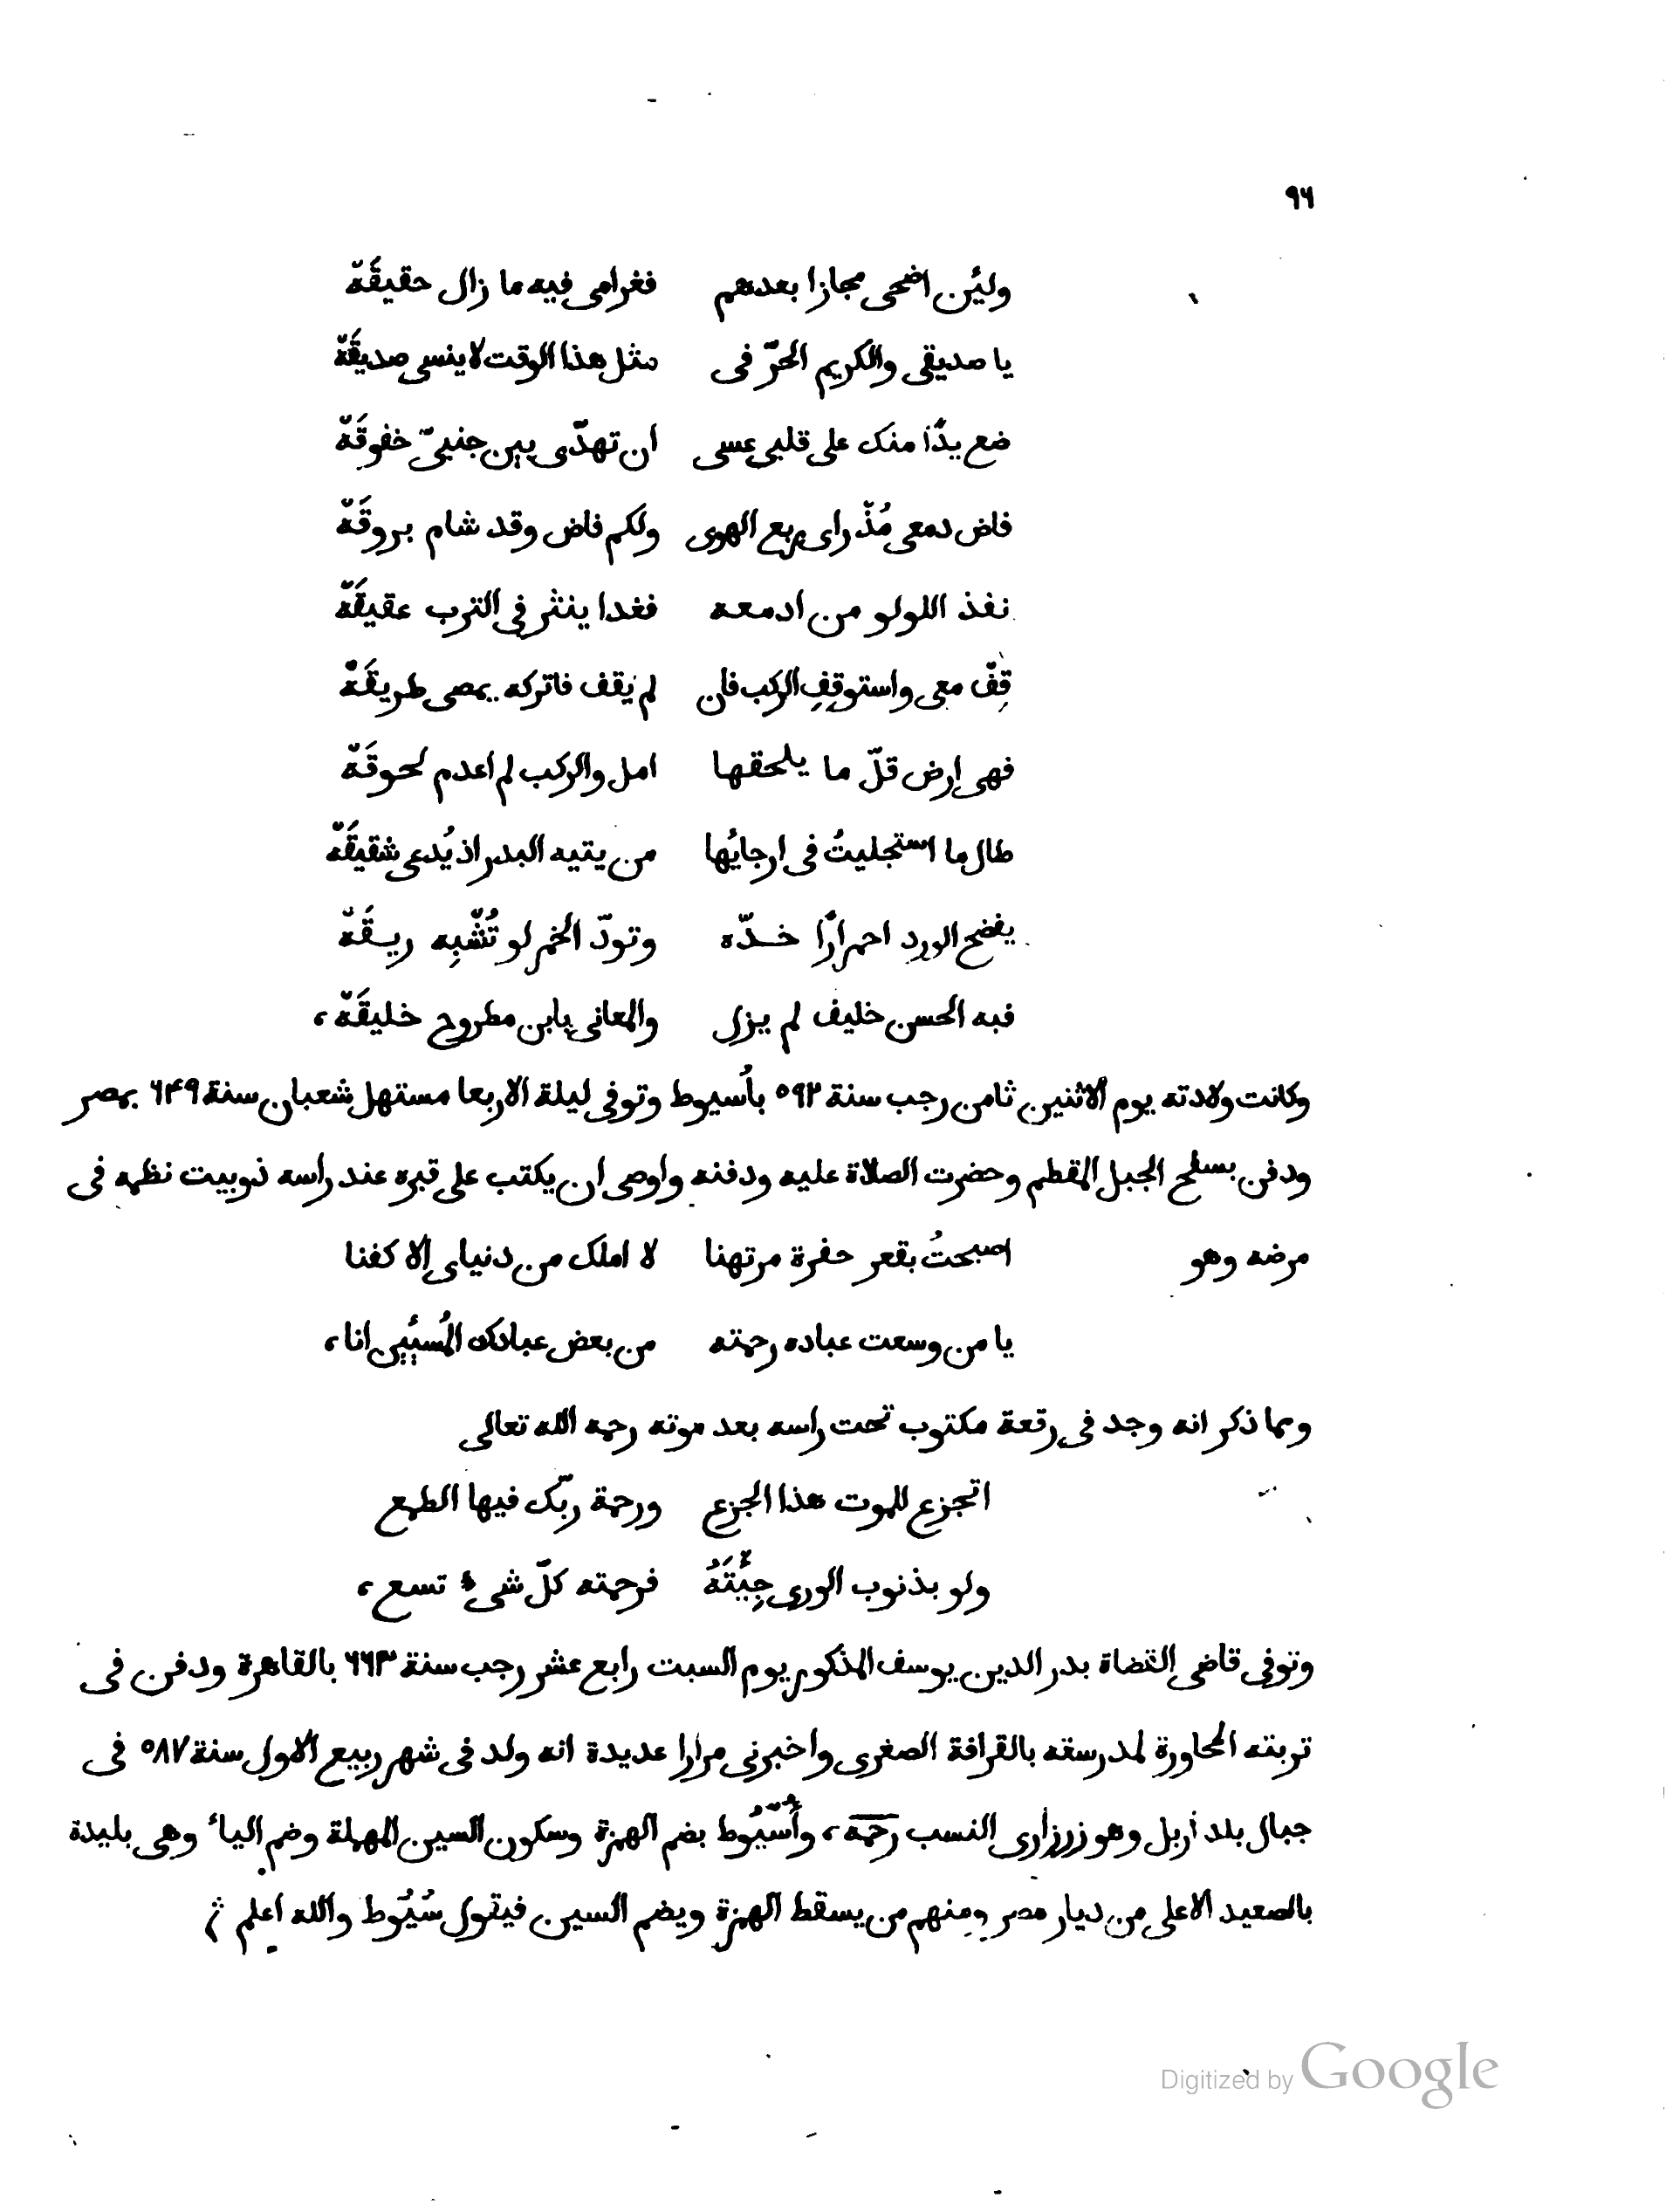 ٩٦
ولئن اضحى مجازا بعدهم فغرامى فيه ما زال حقيقَهْ
يا صديقى والكريم الحرّ فى مثل هذا الوقت لا ينسى صديقَهْ
ضع يدًا منك على قلبى عسى ان تهدّى بين جنبىّ خفوقَهْ
فاض دمعى مُذْ راى ربع الهوى ولكم فاض وقد شام بروقَهْ
نفذ اللولو من ادمعه فغدا ينثر فى الترب عقيقَهْ
قِفْ معى واستوقِفِ الركب فان لم يَقف فاتركه يمضى طريقَهْ
فهى ارض قلّ ما يلحقها امل والركب لم اعدم لحوقَهْ
طال ما استجليتُ فى ارجائها من يتيه البدر اذ يُدعى شقيقَهْ
يفضح الورد احمرارًا خدّه وتودّ الخمر لو تُشْبِه ريقَهْ
فبه الحسن خليف لم يزل والمعانى بابن مطروح خليقَهْ،
وكانت ولادته يوم الاثنين ثامن رجب سنة ٥٩٢ بأُسيوط وتوفى ليلة الاربعا مستهل شعبان سنة ٦۴٩ بمصر
ودفن بسفح الجبل المقطم وحضرت الصلاة عليه ودفنه واوصى ان يكتب على قبره عند راسه ذوبيت نظمه فى
مرضه وهو اصبحتُ بقعر حفرة مرتهنا لا املك من دنياى الا كفنا
يا من وسعت عباده رحمته من بعض عبادك المُسيئين انا،
ومما ذكر انه وجد فى رقعة مكتوب تحت راسه بعد موته رحمه الله تعالى
اتجزع للموت هذا الجزع ورحمة ربّك فيها الطمع
ولو بذنوب الورى جِئْتَهُ فرحمته كلّ شىء تسع،
وتوفى قاضى القضاة بدر الدين يوسف المذكور يوم السبت رابع عشر رجب سنة ٦٦٣ بالقاهرة ودفن فى
تربته المجاورة لمدرسته بالقرافة الصغرى واخبرنى مرارا عديدة انه ولد فى شهر ربيع الاول سنة ٥٨٧ فى
جبال بلد اربل وهو زرزارى النسب رحمه، وأُسْيُوط بضم الهمزة وسكون السين المهملة وضم الياء وهى بليدة
بالصعيد الاعلى من ديار مصر ومنهم من يسقط الهمزة ويضم السين فيقول سُيُوط والله اعلم
Digitized by Google